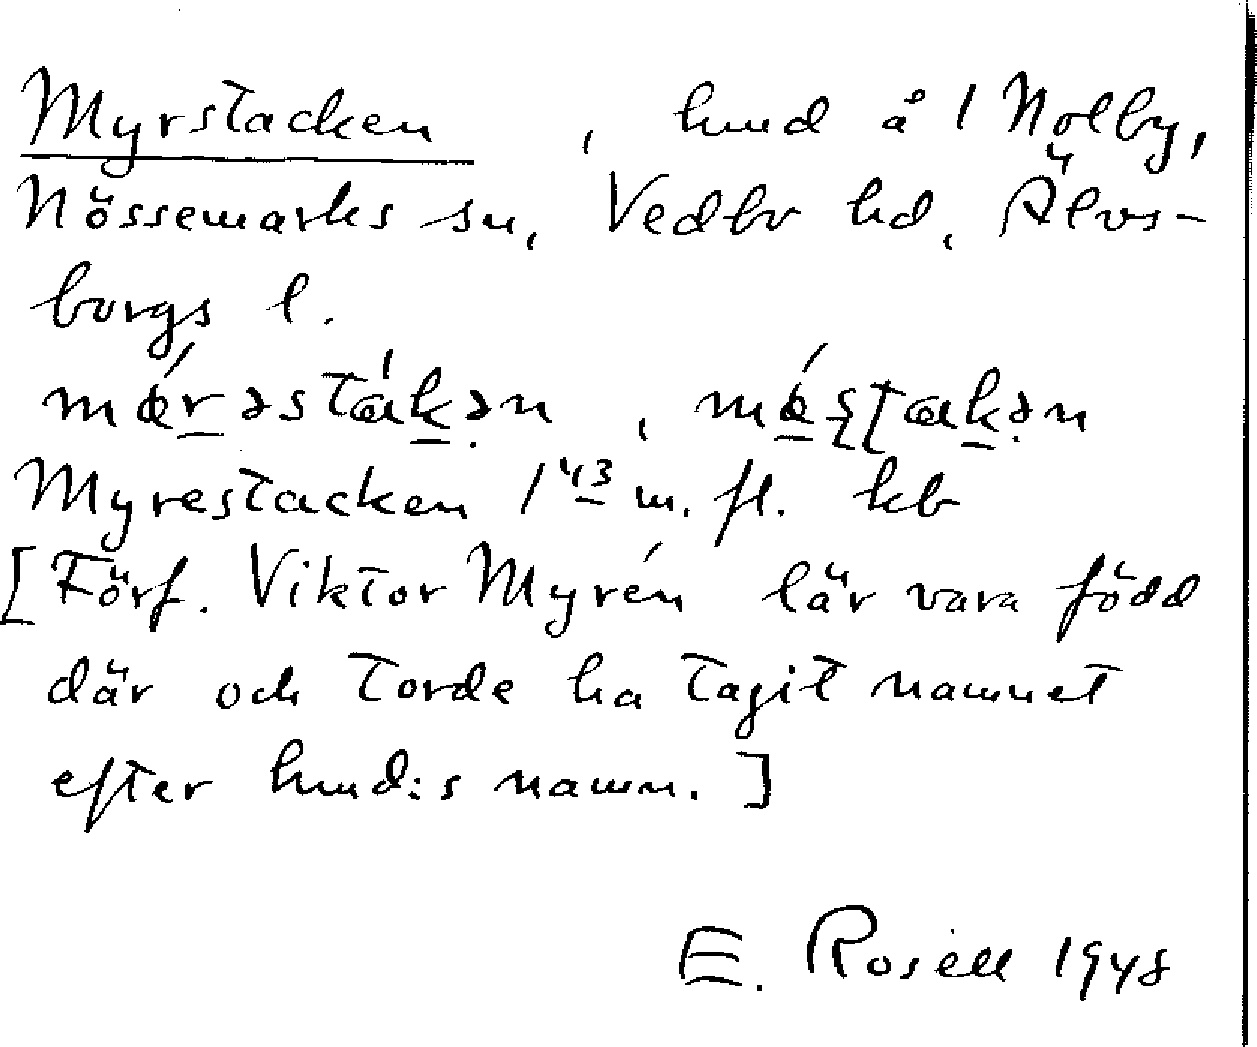 Myrstacken , hmd å 1 Nolby,
Nössemarks sn, Vedbo hd, Älvs-
borgs l.
mǿrəstákən , mǿʂʈakən
Myrestacken 1 43 m. fl. kb
[Förf. Viktor Myrén lär vara född
där och torde ha tagit namnet
efter hmd:s namn.]
E. Rosell 1948